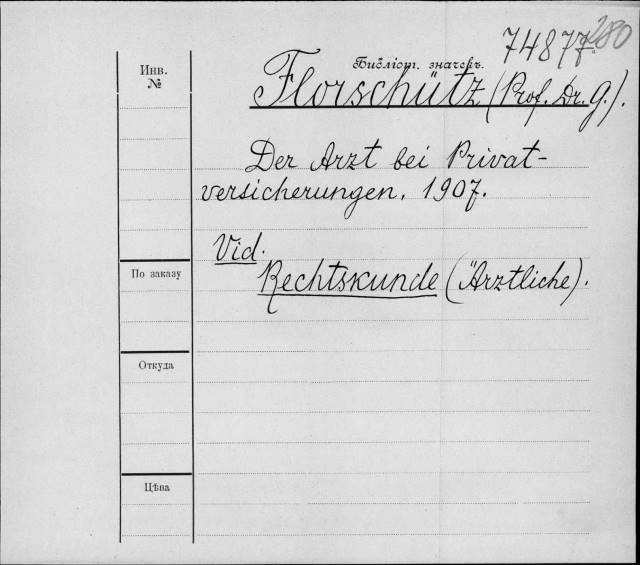 74877 280
Инв.
№
Библіот. значекъ.
Florschütz (Prof. Dr. G.).
Der Arzt bei Privat-
versicherungen. 1907.
Vid.
По заказу
Rechtskunde (Ärztliche).
Откуда
Цѣна